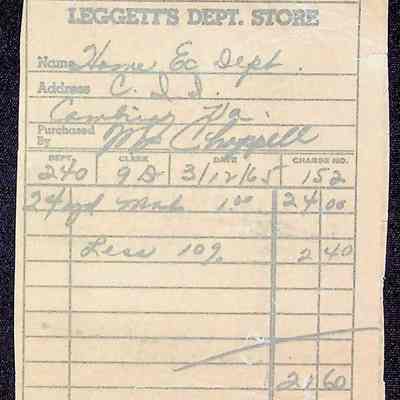 LEGGETT'S DEPT. STORE
Name Home Ec Dept.
Address C. I. I.
Va.
Purchased By Mrs Chappell
DEPT. CLERK DATE CHARGE NO.
240 9D 3/12/65 152
24 yd 1.00 24 00
Less 10% 2 40
21 60